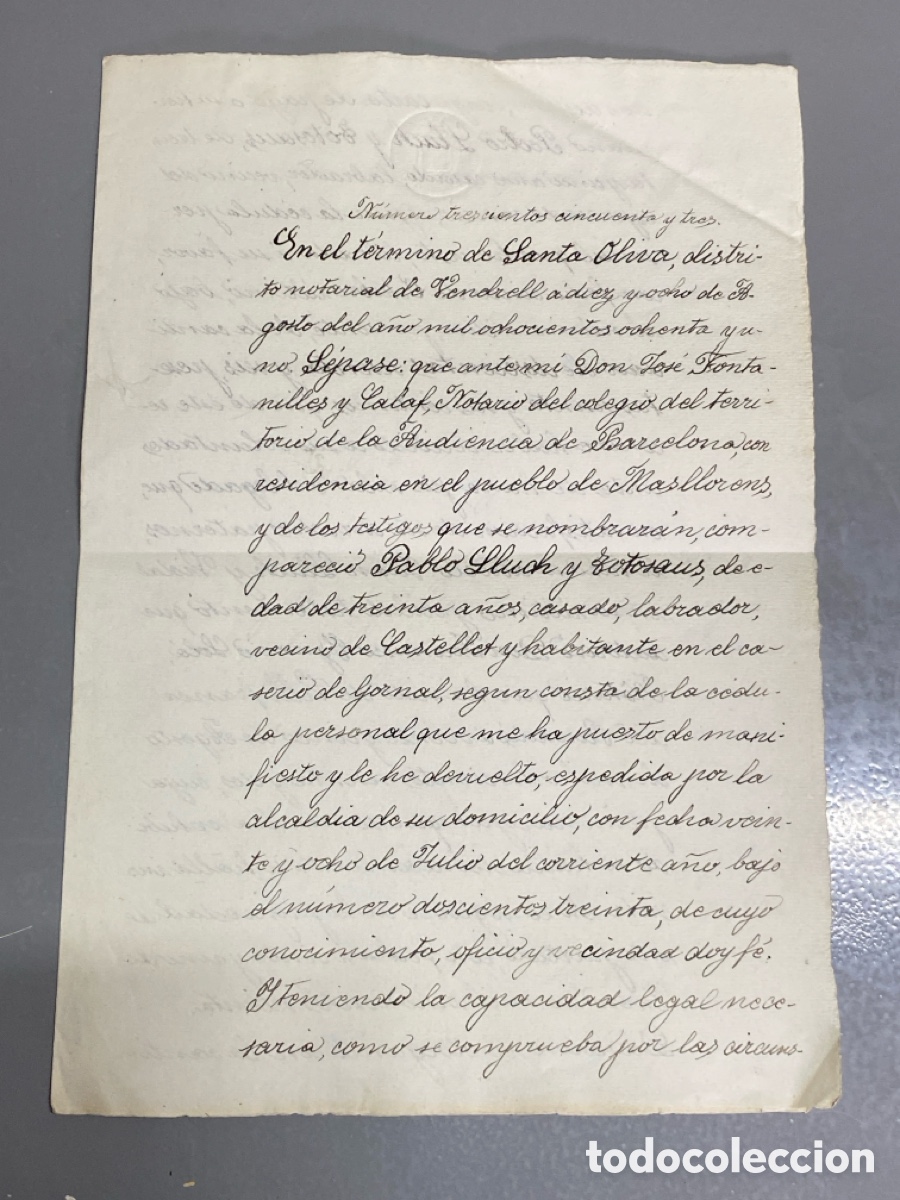 Número trescientos cincuenta y tres.
En el término de Santa Oliva, distri-
to notarial de Vendrell á diez y ocho de A-
gosto del año mil ochocientos ochenta y u-
no. Sépase: que ante mí Don José Fonta-
nilles y Calaf, Notario del colegio del terri-
torio de la Audiencia de Barcelona, con
residencia en el pueblo de Masllorens,
y de los testigos que se nombrarán, com-
pareció Pablo Lluch y Totosaus, de e-
dad de treinta años, casado, labrador,
vecino de Castellet y habitante en el ca-
serio de Gornal, segun consta de la cédu-
la personal que me ha puesto de mani-
fiesto y le he devuelto, espedida por la
alcaldia de su domicilio, con fecha vein-
te y ocho de Julio del corriente año, bajo
el número doscientos treinta, de cuyo
conocimiento, oficio y vecindad doy fé.
Y teniendo la capacidad legal nece-
saria, como se comprueba por las circuns-
todocoleccion